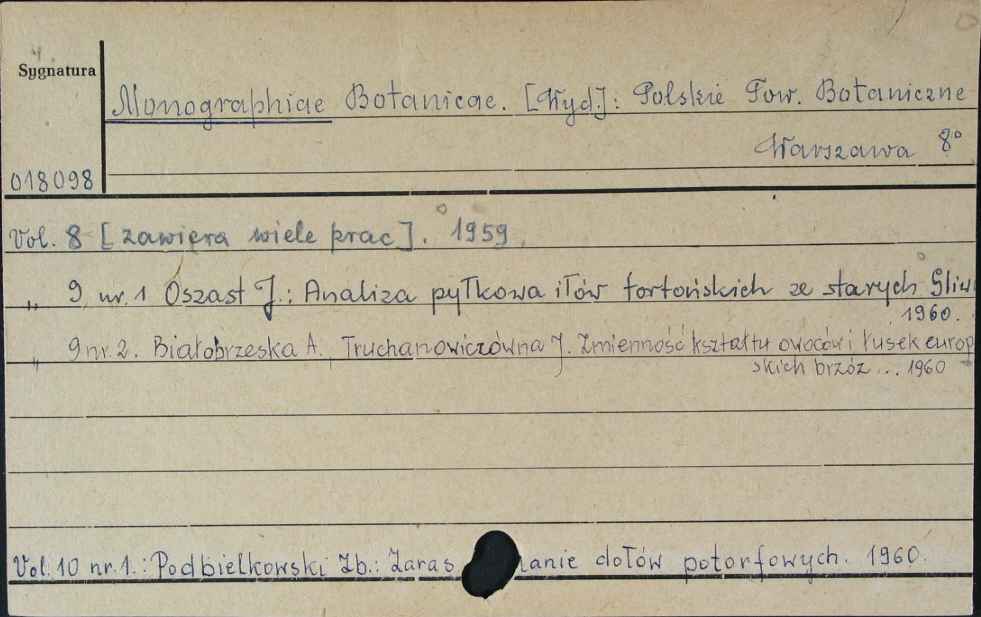 Sygnatura
Monographiae Botanicae. [Wyd.]: Polskie Tow. Botaniczne
Warszawa 8°
018098
Vol. 8 [zawiera wiele prac]. 1959
" 9 nr. 1 Oszast J.: Analiza pyłkowa iłów tortońskich ze starych Gliw
1960.
" 9 nr. 2. Białobrzeska A. Truchanowiczówna J. Zmienność kształtu owoców i łusek europ
skich brzóz... 1960
Vol. 10 nr. 1.: Podbielkowski Zb.: Zaras anie dołów potorfowych. 1960.